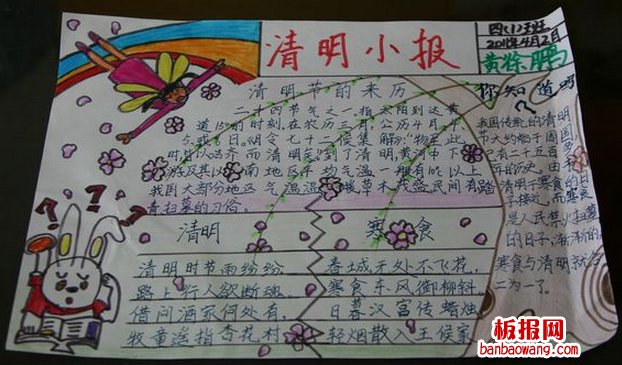 清明小报
四(1)班
2014年4月2日
黄徐鹏
清明节的来历
二十四节气之一,指太阳到达黄
道15°的时刻,在农历三月,公历4月4
与6日。
时 而清明矣。到了清明,黄河中下
游及其以南地区平均气温一般有 以上
我国大部分地区气温 暖草木茂盛民间有踏
青扫墓的习俗。
你知道吗
我国传统的清明
节大约始于周
有二十五百多
年的历史。由
清明于寒食的日
子接近,而寒食
是人民禁火扫墓
的日子,渐渐的
寒食与清明就合
二为一了。
清明
清明时节雨纷纷
路上行人欲断魂。
借问酒家何处有,
牧童遥指杏花村
寒食
春城无处不飞花,
寒食东风御柳斜
日暮汉宫传蜡烛
轻烟散入王侯家
板报网
banbaowang.com